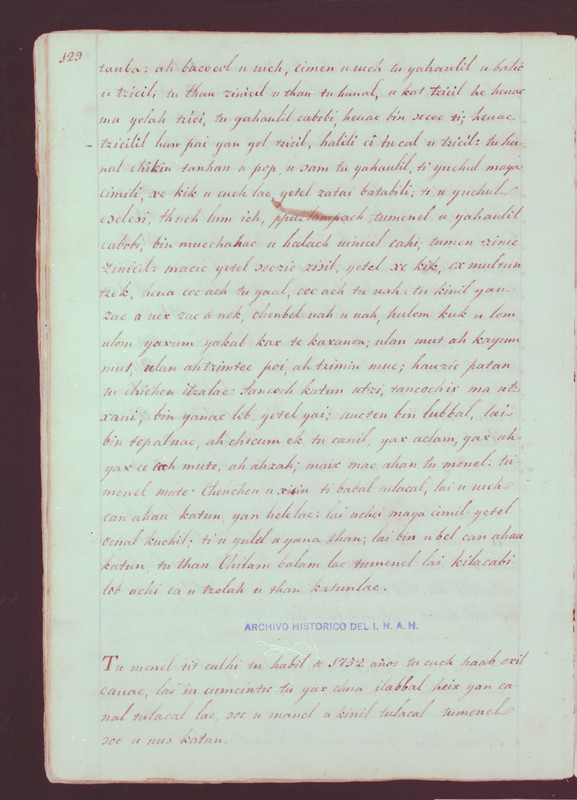 129
tanba: ah bacocol u uich, cimen u uich tu yahaulil u balic
u tzicil, tu than zinicil u than tu hunal, u kat tzicil he henac
ma yolah tzici, tu yahaulil cabobi, henac bin sococ ti, henac
tzicilil hun pai yan yol tzicil, halili ci tu cal u tzicil: tu hu-
nal chikin tanhan u pop, u sam tu yahaulil, ti yuchul maya
cimili, xe kik u cuch lae, yetel zatai batabili; ti u yuchul
eselesi, thuch lum ich, ppuz lampach, tumenel u yahaulil
cabobi, bin muechahac u halach uinicil cahi, tumen zinic
zinicil: macic yetel soczic zisil, yetel xe kik, ex multun
tzek, hena coc ach tu yaal, coc ach tu uah: tu kinil yan
zac a uex zac a nok, chenbel uah u uah, hulom kuk u lom
ulom yaxum yakal kax te kaxanon; ulan mut ah kayum
mut, ulan ah tzimtec poi, ah tzimin muc; hauzic patan
tu chichen itzalae: tancoch katun utzi, tancochix ma utz
xani; bin yanac lob, yetel yai; uucten bin lubbal, lai
bin tepalnac, ah chicum ek tu canil, yax aclam, yax ah
yax u cach mute, ah ahzah; maix mac ahan tu menel: tu
menel mute. Chenchen u xicin ti babal tulacal, lai u uich
can ahau katun, yan helelae: lai uchci maya cimil yetel
ocnal kuchil; ti u yuld u yana than; lai bin u bel can ahau
katun, tu than Chilam balam lae tumenel lai kilacabi-
lob uchi ca u tzolah u than katunlae.
ARCHIVO HISTORICO DEL I. N. A. H.
Tu menel tit culhi tu habil de 1752 años tu cuch haab oxil
cauac, lai in cumcintic tu yax chun ilabbal heix yan ca-
nal tulacal lae, soc u manel u kinil tulacal tumenel
soc u nus katun.